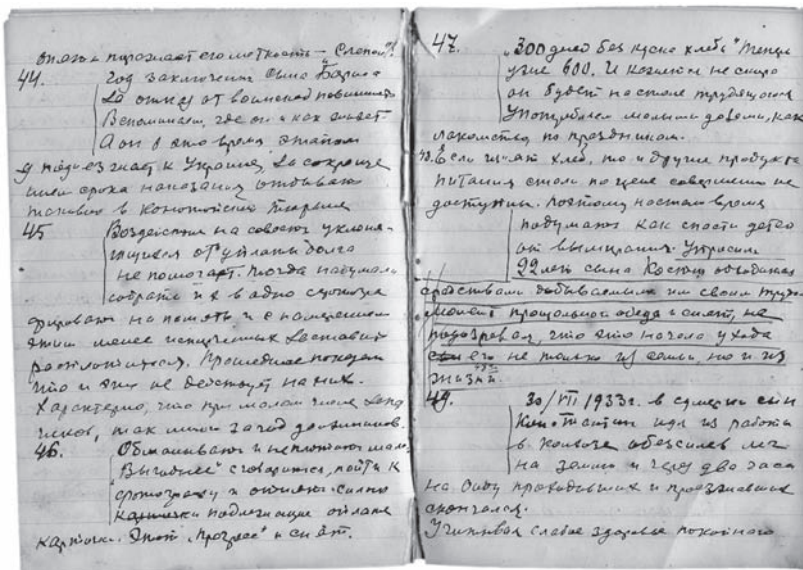 опять и поражает его меткость – Слепой?!
44. Год заключения сына Бориса
за отказ от воинской повинности
Вспоминаем, где он и как живет
А он в это время этапом
подъезжает к Украине, за сокраще
нием срока наказания отбывает
таковой в Конотопской тюрьме
45 Воздействие на совесть уклоня-
ющихся от уплаты долга
не помогает. Тогда надумали
собрать их в одно
на память и с намерением
этим менее
расплатиться. Прошедшее показало
что и это не действует на них.
Характерно, что при малом числе
так много за год должников.
46. Обманывают и не платят мало
"Выгоднее" сговориться, пойти к
фотографу и
карточки подлежащие оплате
карточки. Этот "прогресс" и снят.
47. "300 дней без куска хлеба" Теперь
уже 600. И кажется не скоро
он будет на столе трудящегося
Употребляем малыми дозами, как
лакомство по праздникам.
48. Если хлеб, то и другие продукты
питания стали по цене совершенно не
доступны. Поэтому настало время
подумать как спасти детей
от вымирания. Утрасим
22 лет сына Костю
средствами добываемыми им своим трудом
Момент прощального обеда и снят, не
подозревая, что это начало ухода
его не только из семьи, но и из
жизни.
49. 30/VII 1933 г. в сумерки сын
Константин идя из работы
в колхозе обезсилев лег
на землю и через два часа
на виду проходивших и проезжавших
скончался.
Учитывая слабое здоровье покойного